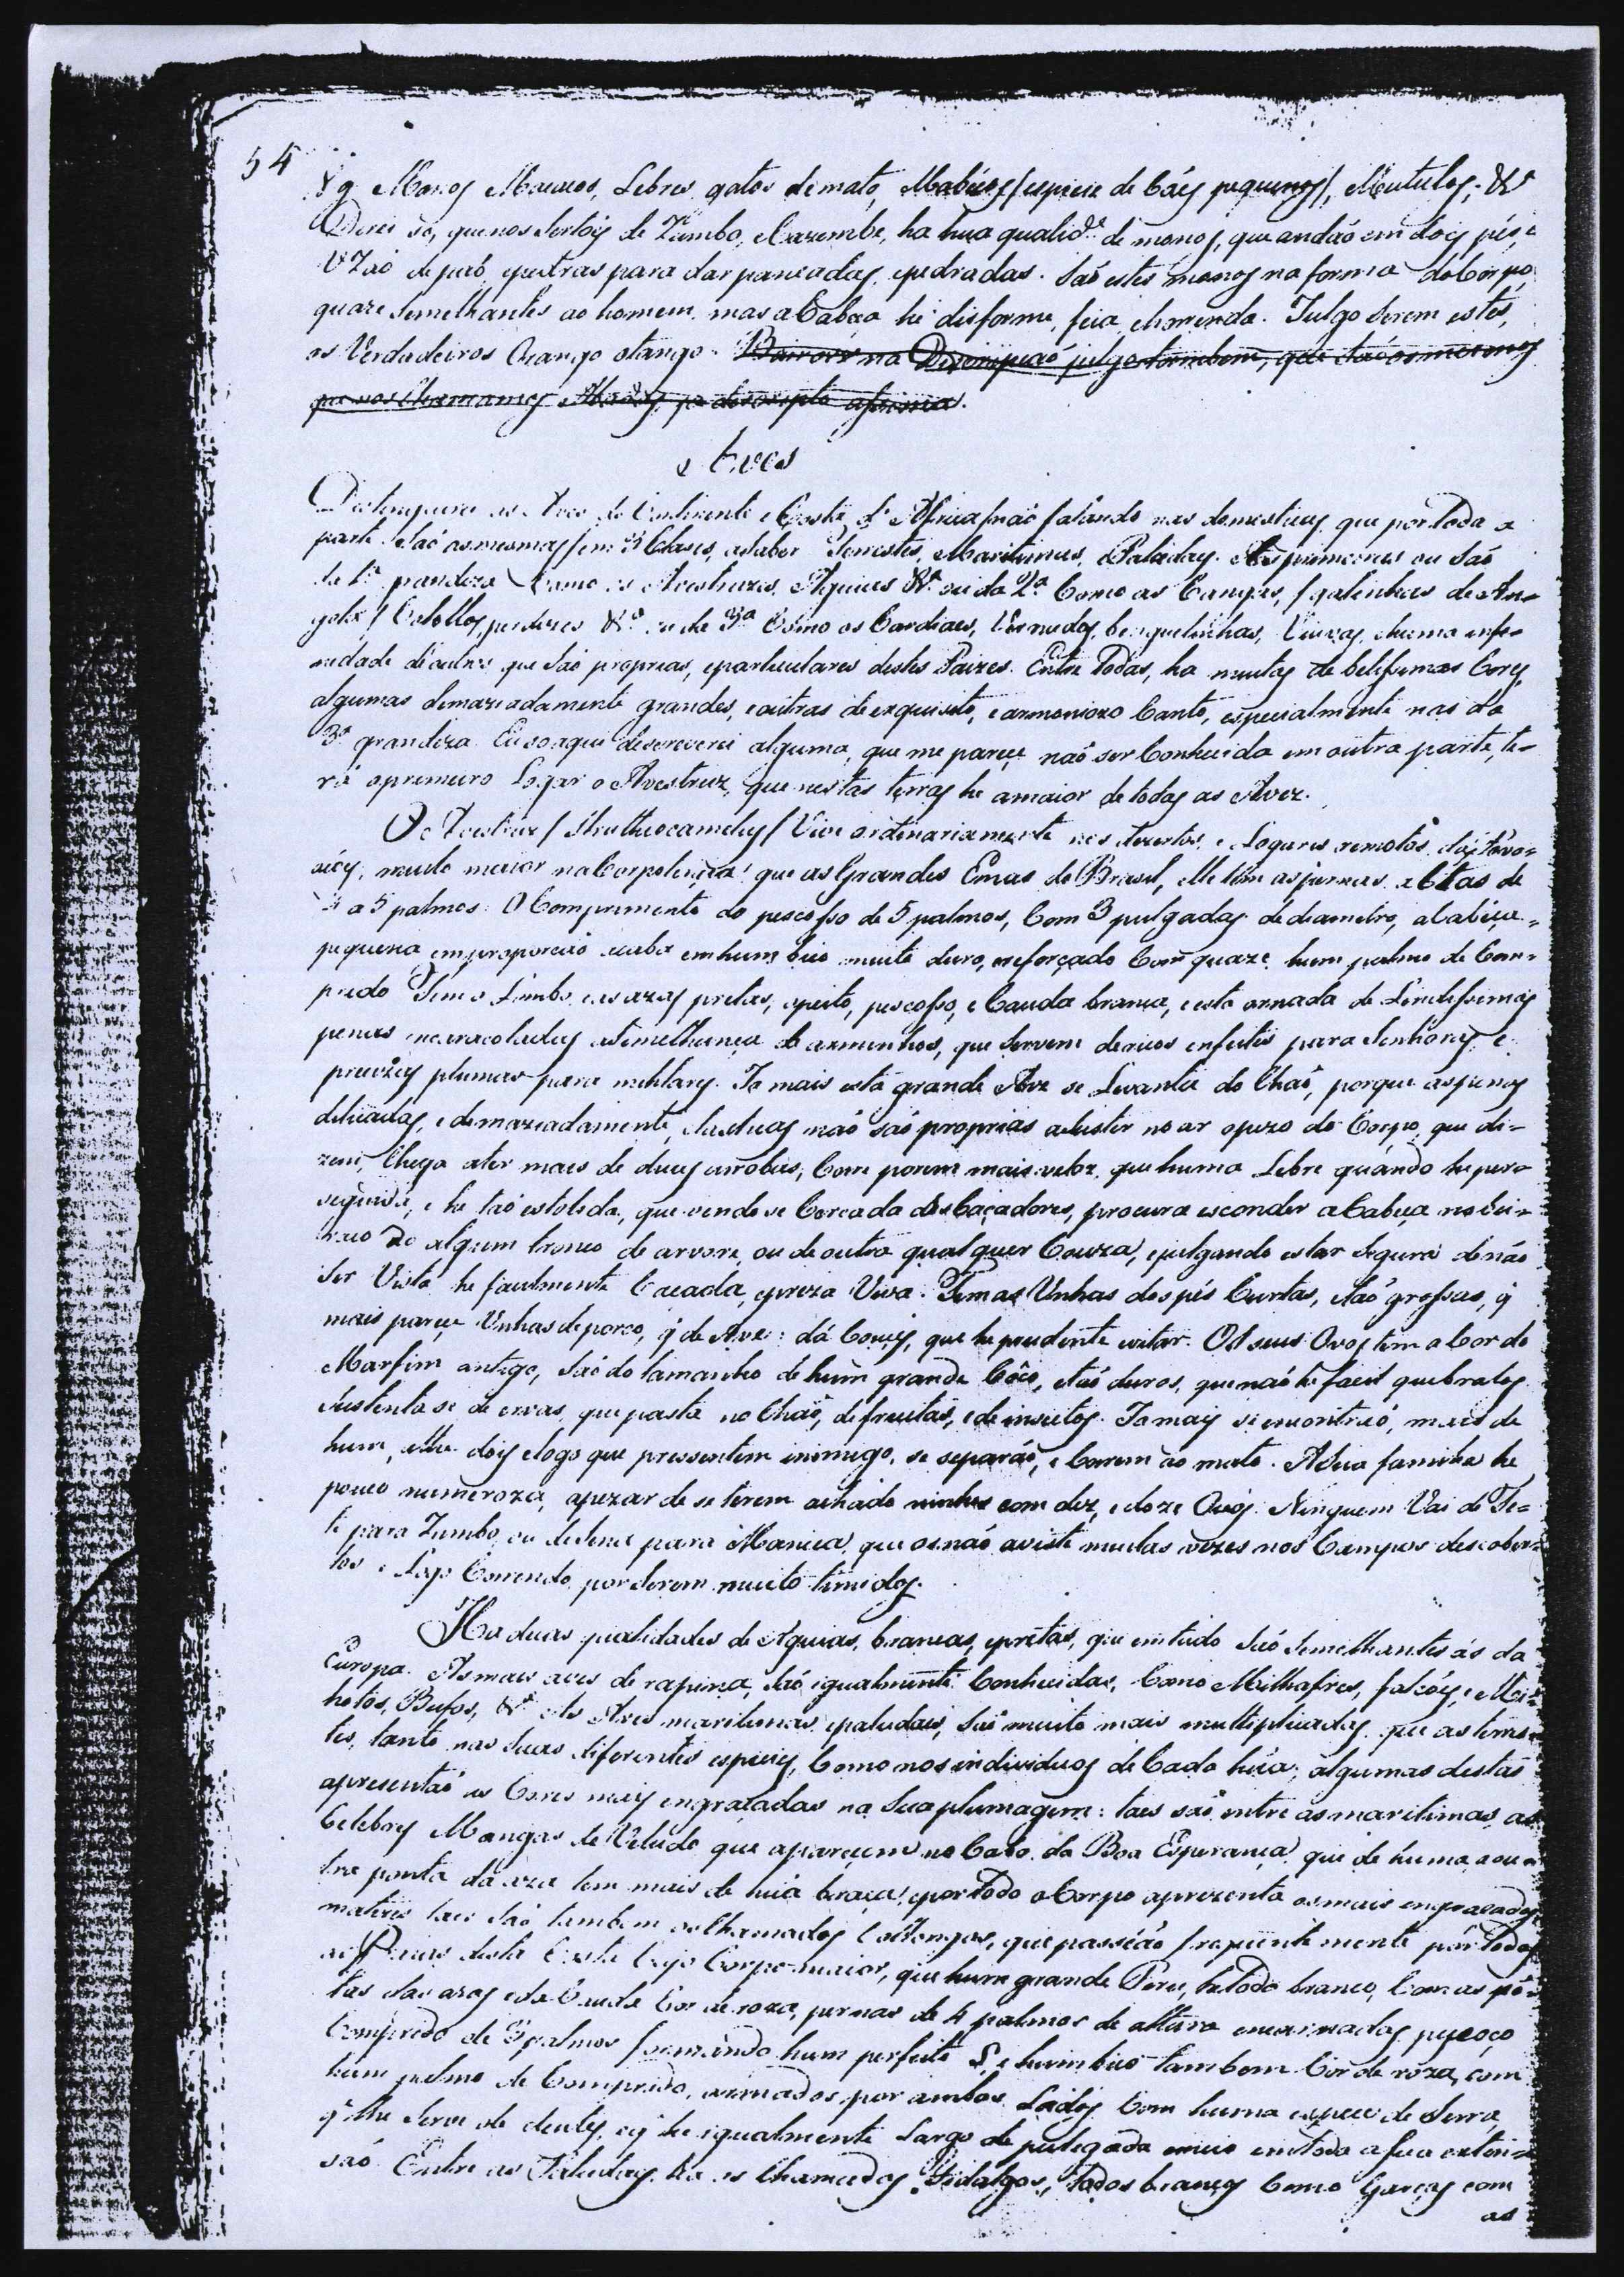 54
Monos Macacos, Lebres, gatos de mato, Mabécos /especie de Cáes pequenos/, Mutulos, &ª
Direi só, que nos Sertões de Zumbo, e Cazembe, ha hua qualid.e de monos, que andão em dois pés, e
uzão de páo, e pedras para dar pancadas, e pedradas. São estes monos na forma do Corpo
quaze semelhantes ao homem, mas a Cabeça he disforme, feia, e horrenda. Julgo serem estes,
os Verdadeiros Orango otango. Barros na Descripção julgo tambem, que são os mesmos
que nos Chamamos
Aves
Distinguirei as Aves do Continente e Costa d'Africa /não falando nas domesticas que por toda a
parte são as mesmas/ em 3 Clases, a saber Terrestes, Maritimas, e Paludaes. As primeiras ou são
da 1ª grandeza Como os Avestruzes, Aguias &ª ou da 2ª Como as Cangas, /galinhas de An=
gola/ perdizes &ª ou da 3ª Como os Cardiaes, benguelinhas, Viuvas, e huma infi=
nidade de outras que são proprias, e particulares destes Paizes. Entre todas, ha muitas de belissimas Cores,
algumas demaziadamente grandes, e outras de exquisito, e armoniozo Canto, especialmente nas da
3ª grandeza. Eu so aqui descreverei alguma, que me pareçe não ser Conhecida em outra parte, te=
rá o primeiro Logar o Avestruz, que nestas terras he a maior de todas as Avez.
O Avestruz /Struthiocamelus/ Vive ordinariamente nos dezertos, e Logares remotos das Povo=
ações, muito maior na Corpolencia que as Grandes Emas do Brasil, elle tem as pernas altas de
4 a 5 palmos. O Comprimento do pescosso de 5 palmos, Com 3 pulgadas de diametro, a Cabeça
pequena em proporção acaba em hum bico muito duro, e reforçado Com quaze hum palmo de Com=
prido. Tem o Lombo, e as azas pretas, o peito, pescosso, e Cauda branca, e esta ornada de Lindissimas
penas encaracoladas a semelhança de arminhos, que servem de ricos enfeites para Senhoras e
preciozas plumas para militares. Jamais esta grande Ave se Levanta do Chaõ, porque as penas
delicadas, e demaziadamente elasticas não são proprias a sustentar no ar o pezo do Corpo, que di=
zem, Chega a ter mais de duas arrobas, Corre porem mais veloz, que huma Lebre quando he per=
seguida, e he tão estolida, que vendo se Cercada dos Caçadores, procura esconder a Cabeça no bu=
raco de algum tronco de arvore, ou de outra qualquer Couza, e julgando estar segura de não
ser Vista he facilmente Caçada, e preza Viva. Tem as Unhas dos pés Curtas, e tão grossas, q
mais pareçe Unhas de porco, q de Ave: dá Couces, que he prudente evitar. Os seus Ovos tem a Cor do
Marfim antigo, são do tamanho de hum grande Côco, e tão duros, que não he facil quebralos.
Sustenta se de ervas, que pasta no Chaõ, de fruitas, e de insectos. Jamais se encontrão, mais de
hum, athe dois e logo que pressentem inimigo, se separão, e Correm ao mato. A sua familia he
pouco numeroza, apezar de se terem achado ninhos com dez, e doze Ovos. Ninguem Vai de Te=
te para Zumbo, ou de Sena para Manica, que os não aviste muitas vezes nos Campos descober=
tos e Logo Correndo, por serem muito timidos.
Ha duas qualidades de Aguias, brancas, e pretas, que em tudo são semelhantes ás da
Europa. As mais aves de rapina, são igualmente Conhecidas, Como Milhafres, falcões, e Mi=
hotos, Bufos, &ª As Aves maritimas, e paludaes, são muito mais multiplicadas que as terres=
tes, tanto nas suas diferentes especies, Como nos individuos de Cada hũa; algumas destas
apresentão as Cores mais engraçadas na sua plumagem: taes são entre as maritimas as
Celebres Mangas de Veludo que apareçem no Cabo da Boa Esperança que de huma, a ou=
tra ponta da aza tem mais de hũa braça, e por todo o Corpo aprezenta os mais engraçados
matizes taes são tambem os Chamados que passeão frequentemente por todas
as Praias desta Costa Cujo Corpo maior, que hum grande Peru, he todo branco, Com as pon=
tas das azas e da Cauda Cor de roza, pernas de 4 palmos de altura encarnadas, pescoço
Comprido de 3 palmos formando hum perfeito S, e hum bico tambem Côr de roza, com
hum palmo de Comprido, armados por ambos Lados Com huma especie de Serra,
q lhe serve de dentes, e q he igualmente Largo de pulegada e meio em toda a sua exten=
são. Entre as Paludaes ha os Chamados Fidalgos, todos brancos Como Garças com
as